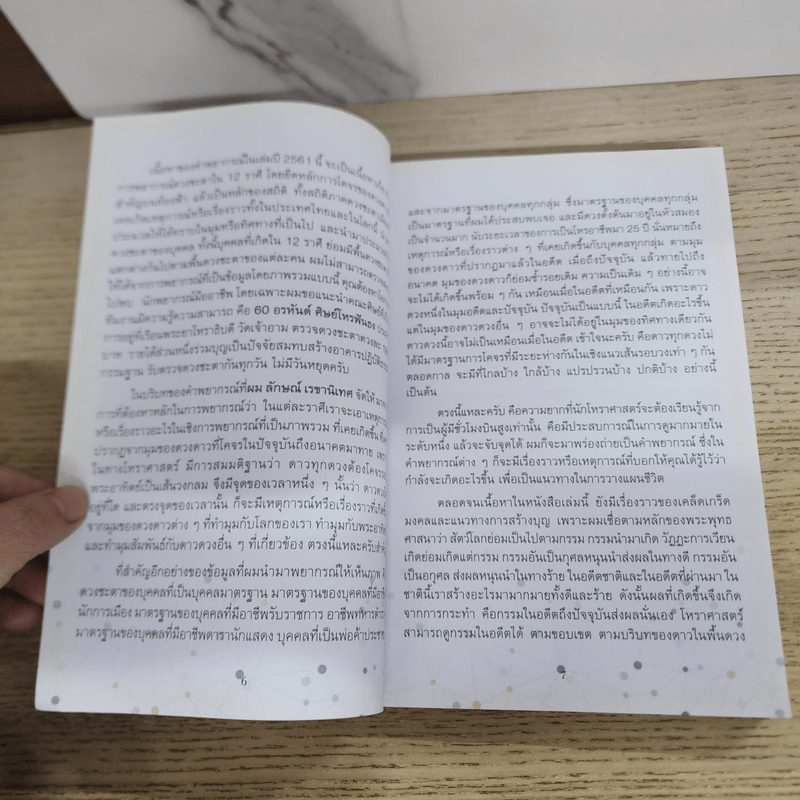 เนื้อหาของคำพยากรณ์ในเล่มปี 2561 นี้ จะเป็นเนื้อหาเกี่ยว
การพยากรณ์ดวงชะตาใน 12 ราศี โดยยึดหลักการโคจรของดวง
สำคัญบนท้องฟ้า แล้วเป็นหลักของสถิติ ทั้งสถิติภาคดวงชะตาเมือง
เคยเกิดเหตุการณ์หรือเรื่องราวทั้งในประเทศไทยและในโลกนี้
ประมวลให้ได้ทราบในมุมหรือทิศทางที่เป็นไป และนำมาประมวล
ดวงชะตาของบุคคล ทั้งนี้บุคคลที่เกิดใน 12 ราศี ย่อมมีพื้นดวงชะตา
แตกต่างกันไปตามพื้นดวงชะตาของแต่ละคน ผมไม่สามารถตรวจ
ให้ได้จากการพยากรณ์ที่เป็นข้อมูลโดยภาพรวมแบบนี้ คุณต้อง
ไปพบ นักพยากรณ์มืออาชีพ โดยเฉพาะผมขอแนะนำคณะศิษย์
ทีมงานมีความรู้ความสามารถ คือ 60 อรหันต์ ศิษย์โหรฟันธง ประจำ
การอยู่ที่เรือนพระยาโหราธิบดี วัดเจ้าอาม ตรวจดวงชะตาดวงละ
บาท รายได้ส่วนหนึ่งร่วมบุญเป็นปัจจัยสมทบสร้างอาคารปฏิบัติ
กรรมฐาน รับตรวจดวงชะตากันทุกวัน ไม่มีวันหยุดครับ
ในบริบทของคำพยากรณ์ที่ผม ลักษณ์ เรขานิเทศ จัดให้
การที่ต้องหาหลักในการพยากรณ์ว่า ในแต่ละราศีเราจะเอาเหตุการณ์
หรือเรื่องราวอะไรในเชิงการพยากรณ์ที่เป็นภาพรวม ที่เคยเกิดขึ้น
ปรากฏจากมุมของดวงดาวที่โคจรในปัจจุบันถึงอนาคตมาทาย เพราะ
ในทางโหราศาสตร์ มีการสมมติฐานว่า ดาวทุกดวงต้องโคจร
พระอาทิตย์เป็นเส้นวงกลม จึงมีจุดของเวลาหนึ่ง ๆ นั้นว่า ดาวดวง
อยู่ที่ใด และตรงจุดของเวลานั้น ก็จะมีเหตุการณ์หรือเรื่องราวที่เกิด
จากมุมของดวงดาวต่าง ๆ ที่ทำมุมกับโลกของเรา ทำมุมกับพระอาทิตย์
และทำมุมสัมพันธ์กับดาวดวงอื่น ๆ ที่เกี่ยวข้อง ตรงนี้แหละครับสำคัญ
ที่สำคัญอีกอย่างของข้อมูลที่ผมนำมาพยากรณ์ให้เห็นภาพ
ดวงชะตาของบุคคลที่เป็นบุคคลมาตรฐาน มาตรฐานของบุคคลที่มีอาชีพ
นักการเมือง มาตรฐานของบุคคลที่มีอาชีพรับราชการ อาชีพทหารตำรวจ
มาตรฐานของบุคคลที่มีอาชีพดารานักแสดง บุคคลที่เป็นพ่อค้าประชาชน
6
และจากมาตรฐานของบุคคลทุกกลุ่ม ซึ่งมาตรฐานของบุคคลทุกกลุ่ม
เป็นมาตรฐานที่ผมได้ประสบพบเจอ และมีดวงตั้งต้นมาอยู่ในหัวสมอง
เป็นจำนวนมาก นับระยะเวลาของการเป็นโหราอาชีพมา 25 ปี นั่นหมายถึง
เหตุการณ์หรือเรื่องราวต่าง ๆ ที่เคยเกิดขึ้นกับบุคคลทุกกลุ่ม ตามมุม
ของดวงดาวที่ปรากฏมาแล้วในอดีต เมื่อถึงปัจจุบัน แล้วทายไปถึง
อนาคต มุมของดวงดาวก็ย่อมซ้ำรอยเดิม ความเป็นเดิม ๆ อย่างนี้อาจ
จะไม่ได้เกิดขึ้นพร้อม ๆ กัน เหมือนเมื่อในอดีตที่เหมือนกัน เพราะดาว
ดวงหนึ่งในมุมอดีตและปัจจุบัน ปัจจุบันเป็นแบบนี้ ในอดีตเกิดอะไรขึ้น
แต่ในมุมของดาวดวงอื่น ๆ อาจจะไม่ได้อยู่ในมุมของทิศทางเดียวกัน
ดาวดวงนี้อาจไม่เป็นเหมือนเมื่อในอดีต เข้าใจนะครับ คือดาวทุกดวงไม่
ได้มีมาตรฐานการโคจรที่มีระยะห่างกันในเชิงแนวเส้นรอบวงเท่า ๆ กัน
ตลอดกาล จะมีที่ไกลบ้าง ใกล้บ้าง แปรปรวนบ้าง ปกติบ้าง อย่างนี้
เป็นต้น
ตรงนี้แหละครับ คือความยากที่นักโหราศาสตร์จะต้องเรียนรู้จาก
การเป็นผู้มีชั่วโมงบินสูงเท่านั้น คือมีประสบการณ์ในการดูมากมายใน
ระดับหนึ่ง แล้วจะจับจุดได้ ผมก็จะมาพร่องถ่ายเป็นคำพยากรณ์ ซึ่งใน
คำพยากรณ์ต่าง ๆ ก็จะมีเรื่องราวหรือเหตุการณ์ที่บอกให้คุณได้รู้ไว้ว่า
กำลังจะเกิดอะไรขึ้น เพื่อเป็นแนวทางในการวางแผนชีวิต
ตลอดจนเนื้อหาในหนังสือเล่มนี้ ยังมีเรื่องราวของเคล็ดเกร็ด
มงคลและแนวทางการสร้างบุญ เพราะผมเชื่อตามหลักของพระพุทธ
ศาสนาว่า สัตว์โลกย่อมเป็นไปตามกรรม กรรมนำมาเกิด วัฏฏะการเวียน
เกิดย่อมเกิดแต่กรรม กรรมอันเป็นกุศลหนุนนำส่งผลในทางดี กรรมอัน
เป็นอกุศล ส่งผลหนุนนำในทางร้าย ในอดีตชาติและในอดีตที่ผ่านมา ใน
ชาตินี้เราสร้างอะไรมามากมายทั้งดีและร้าย ดังนั้นผลที่เกิดขึ้นจึงเกิด
จากการกระทำ คือกรรมในอดีตถึงปัจจุบันส่งผลนั่นเอง โหราศาสตร์
สามารถดูกรรมในอดีตได้ ตามขอบเขต ตามบริบทของดาวในพื้นดวง
7